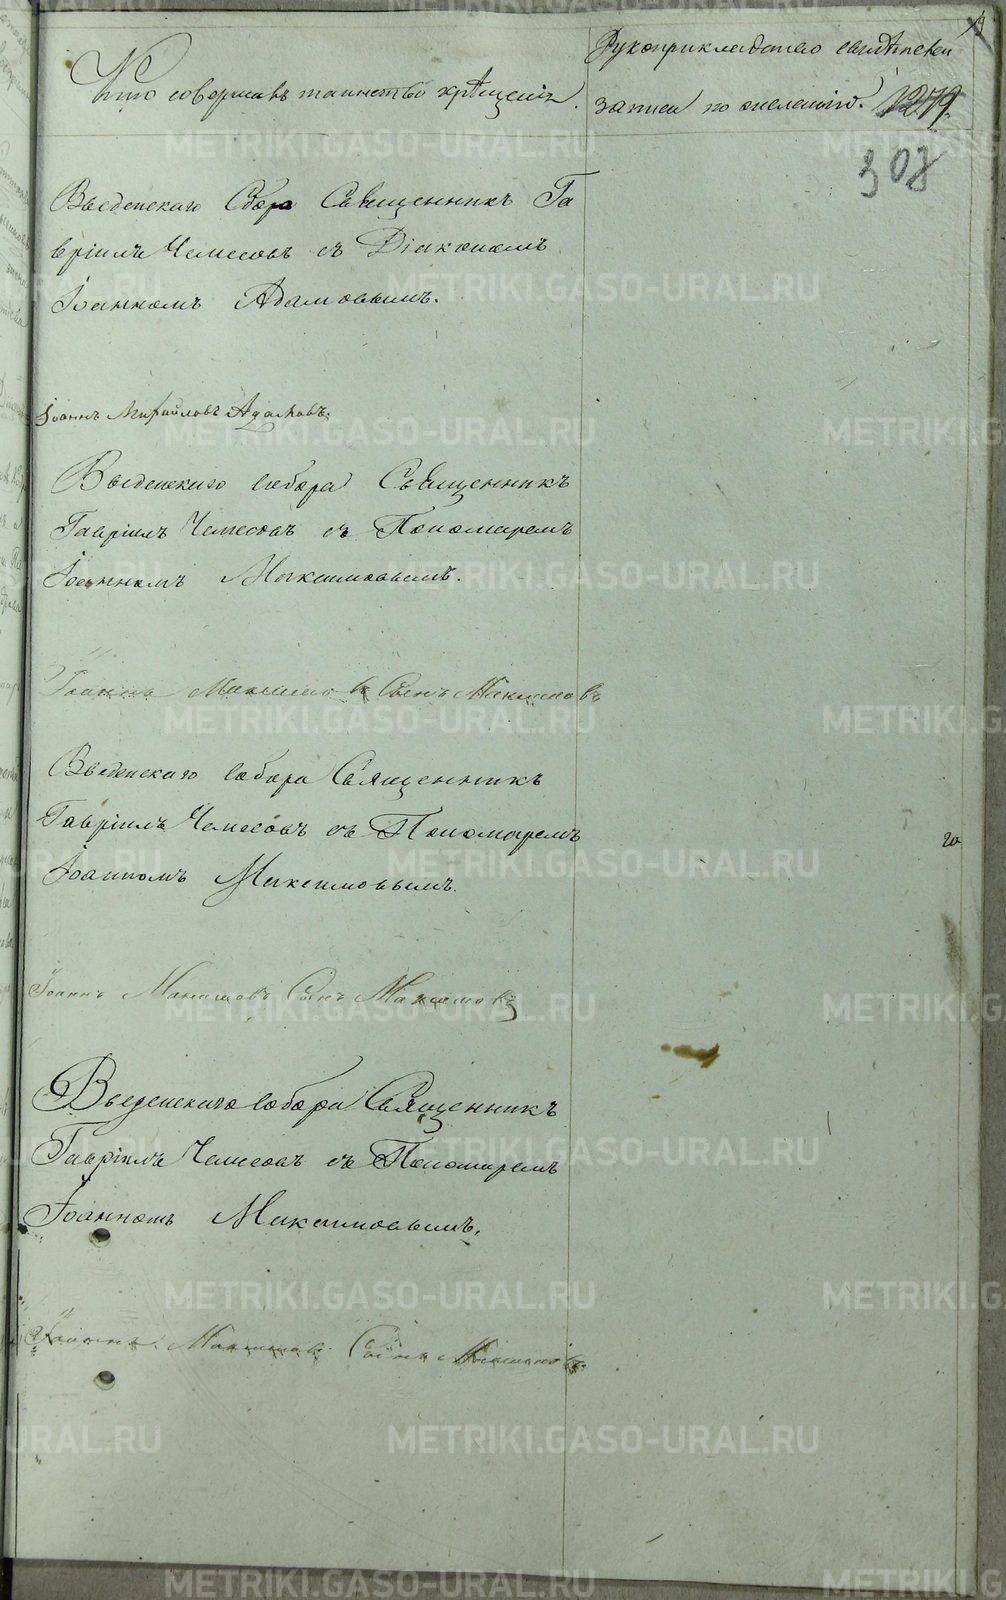 Кто совершавъ таинство крѣщенiя.
Рукоприкладство свидѣтелей
записи по желанiю. 1279
308
Введенскаго Сбора Священникъ Га
врiилъ Чемесовъ съ Дiакономъ
Iоанномъ Адамовымъ.
Iоаннъ Михайловъ Адамовъ.
Введенскаго собора Священникъ
Гаврiилъ Чемесовъ съ Пономаремъ
Iоанномъ Максимовымъ.
Iоаннъ Максимовъ Сынъ Максимовъ
Введенскаго собора Священникъ
Гаврiилъ Чемесовъ съ Пономаремъ
го
Iоанномъ Максимовымъ.
Iоаннъ Максимовъ Сынъ Максимовъ
Введенскаго собора Священникъ
Гаврiилъ Чемесовъ съ Пономаремъ
Iоанномъ Максимовымъ.
Iоаннъ Максимовъ Сынъ Максимовъ
METRIKI.GASO-URAL.RU